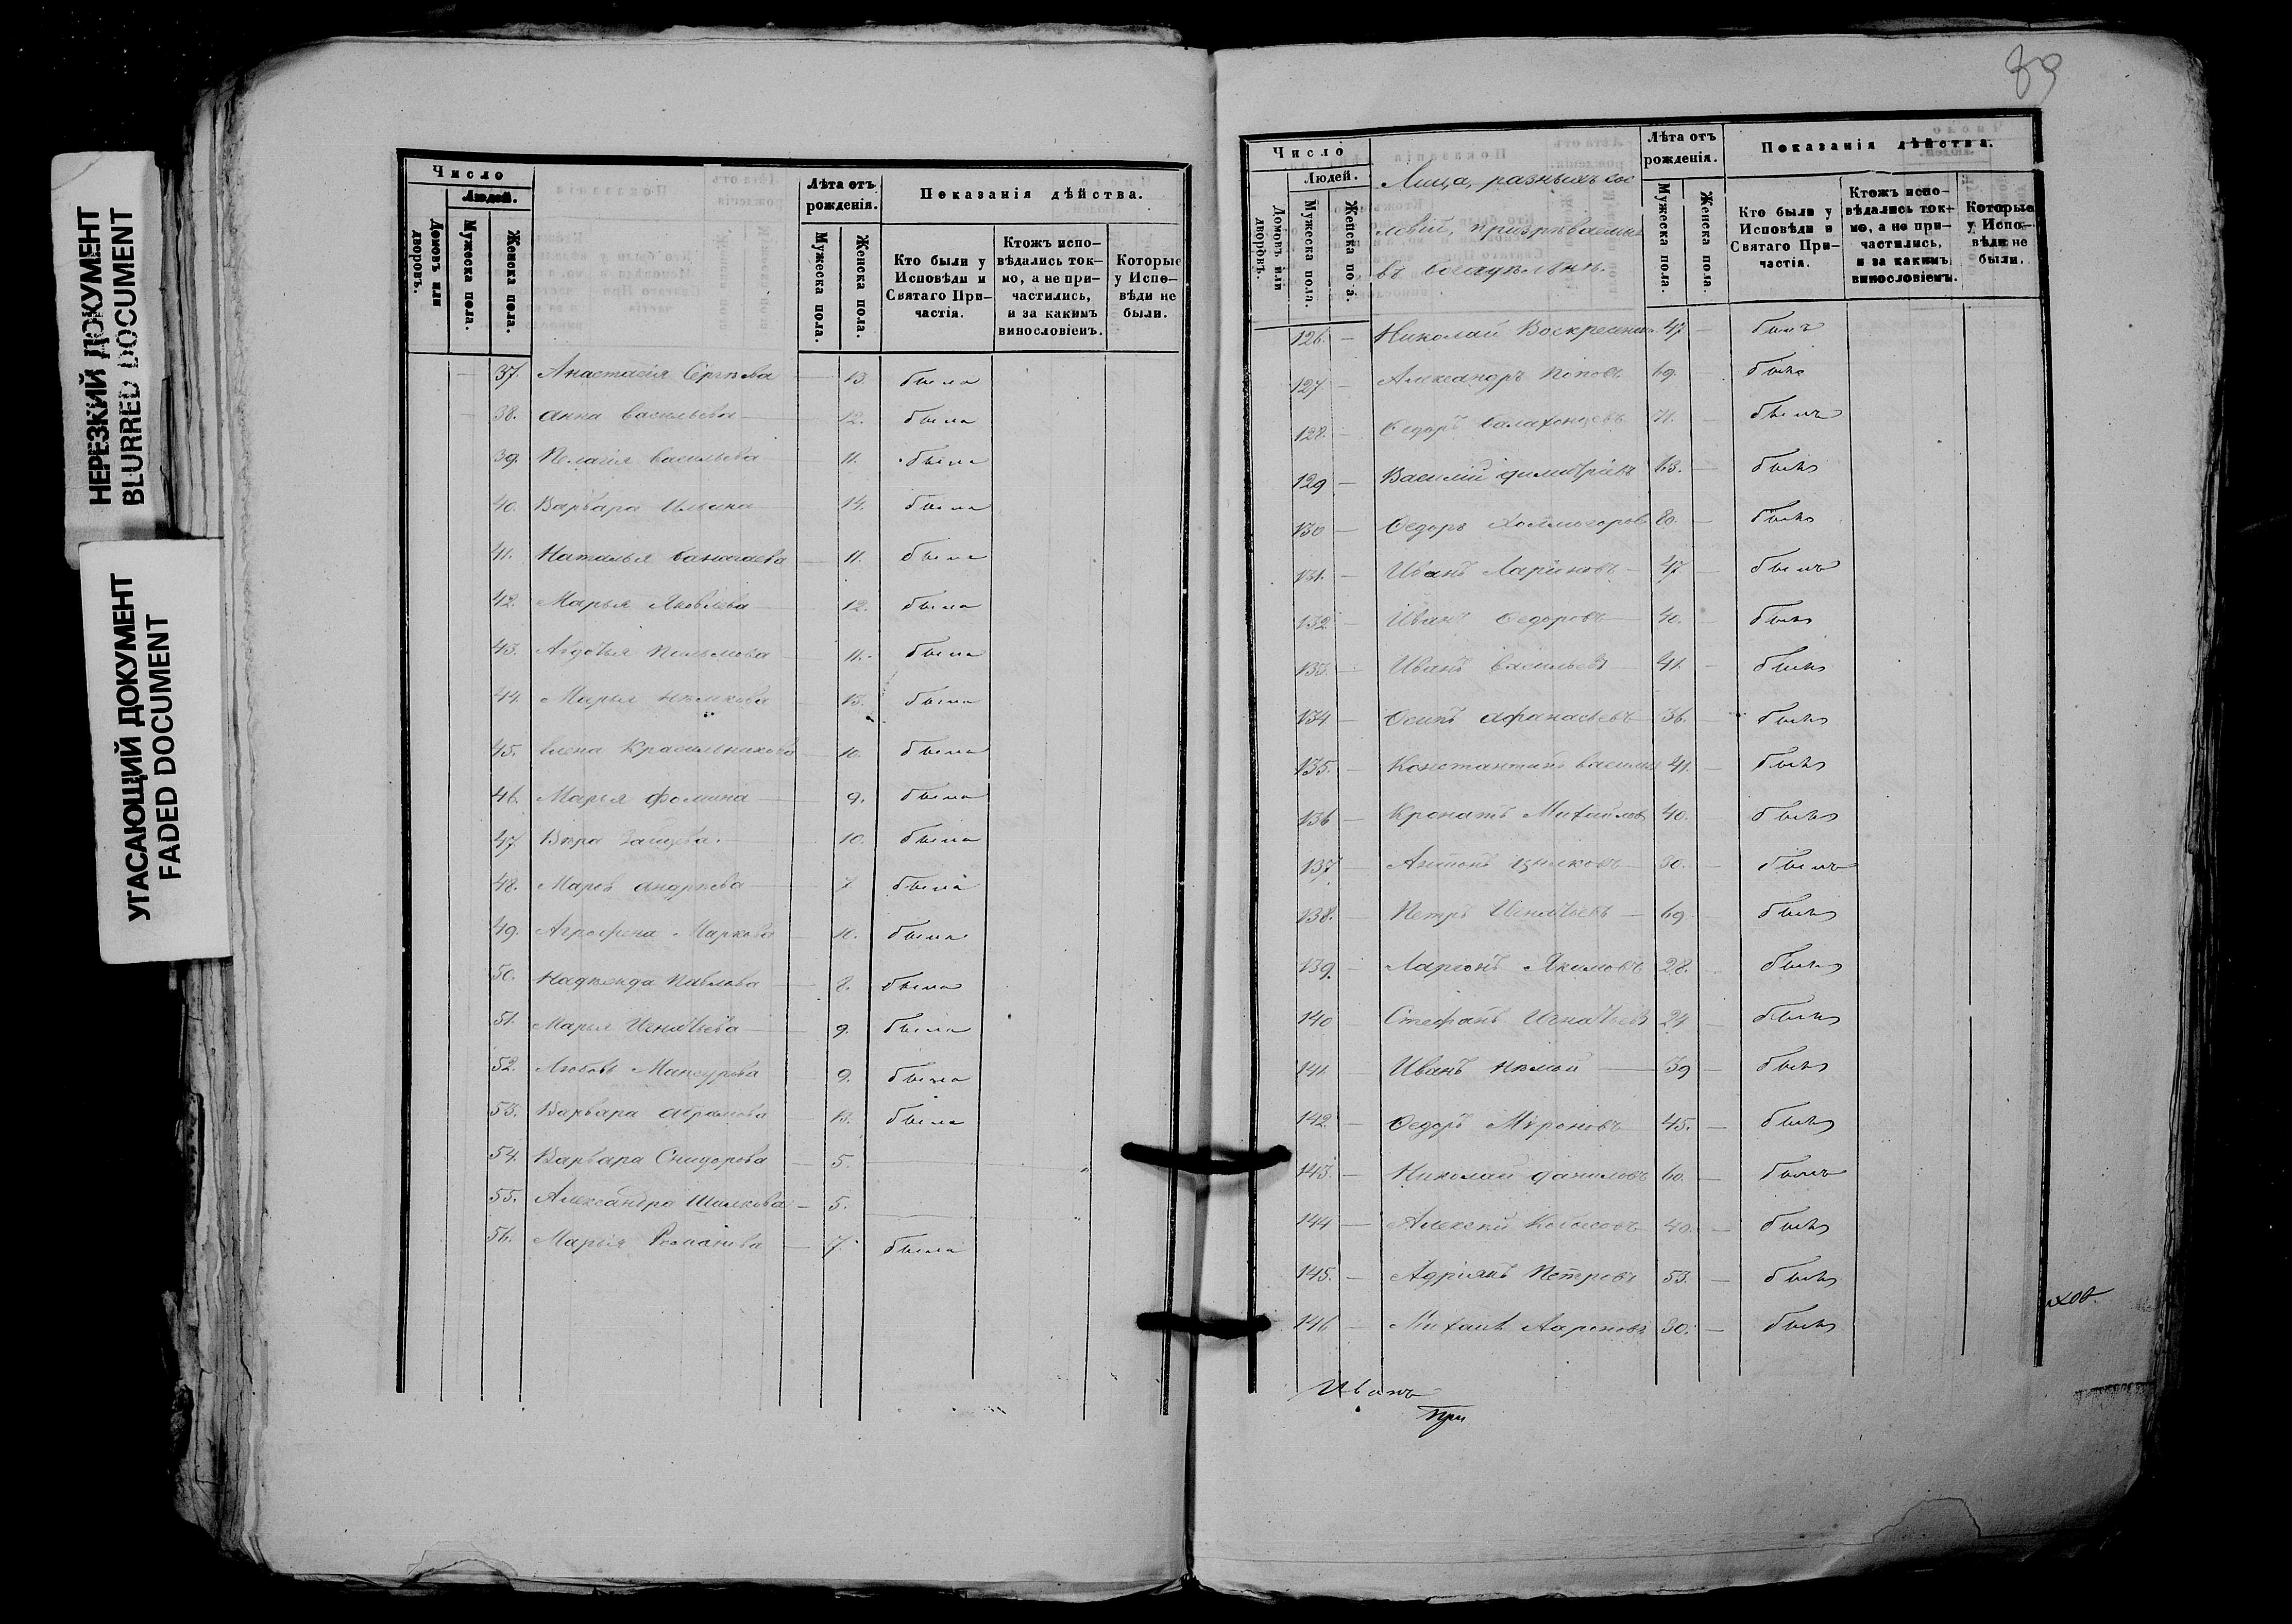 НЕРЕЗКИЙ ДОКУМЕНТ
BLURRED DOCUMENT
УГАСАЮЩИЙ ДОКУМЕНТ
FADED DOCUMENT
Число
Людей.
Домовъ или дворовъ.
Мужеска пола.
Женска пола.
Лѣта отъ рожденія.
Мужеска пола
Женска пола.
Показанія дѣйства.
Кто были у Исповѣди и Святаго При-
частія.
Ктожъ испо-
вѣдались ток-
мо, а не при-
частились,
и за какимъ
винословіемъ.
Которые
у Испо-
вѣди не
были.
37. Анастасія Сергѣева — 13. была
38. Анна Васильева — 12. была
39. Пелагія Васильева — 11. была
40. Варвара Ильина — 14. была
41. Наталья — 11. была
42. Марья Яковлева — 12. была
43. Авдотья — 11. была
44. Марья — 13. была
45. Елена Красильникова — 10. была
46. Марья Фомина — 9. была
47 Вѣра Зайцева. — 10. была
48. Марѳа Андреева — 7. была
49. Агрофена Маркова — 10. была
50. Надежда Павлова — 8. была
51. Марья Игнатьева — 9. была
52. Любовь Мансурова — 9. была
53. Варвара Абрамова — 13. была
54. Варвара Спидорова — 5. —
55. Александра Шалкова — 5. —
56. Марья Романова — 7 была
89
Число
Людей.
Домовъ или дворовъ.
Мужеска пола.
Женска пола.
Лица, разныхъ сос
ловій, призрѣваемыя
въ богадѣльнѣ.
Лѣта отъ рожденія.
Мужеска пола.
Женска пола.
Показанія дѣйства.
Кто были у
Исповѣди и
Святаго При-
частія.
Ктожъ испо-
вѣдались ток-
мо, а не при-
частились,
и за какимъ
винословіемъ.
Которые
у Испо-
вѣди не
были.
126. — Николай 47 — былъ
127 — Александръ Поповъ 69. — былъ
128. — Ѳедоръ 71. — былъ
129 — Василій Димитріевъ 73. — былъ
130 — Ѳедоръ Холмогоровъ 80. — былъ
131. — Иванъ Ларіновъ — 47 — былъ
132 — Иванъ Ѳедоровъ — 40. — былъ
133. — Иванъ Васильевъ — 41. — былъ
134 — Осипъ Афанасьевъ — 36. — былъ
135. — Константинъ 41. — былъ
136 — Кронатъ Михайловъ 40. — былъ
137 — Антонъ — 50. — былъ
138. — Петръ Игнатьевъ — 69. — былъ
139. — Ларіонъ Якимовъ 28. — былъ
140 — Стефанъ Игнатьевъ 24 — былъ
141 — Иванъ Нѣмой — 39 — былъ
142 — Ѳедоръ Мѵроновъ 45. — былъ
143. — Николай Даниловъ 60. — былъ
144 — Алексѣй 40. — былъ
145. — Адріянъ Петровъ 53. — былъ
146 — Михаилъ Ларіоновъ 30. — былъ
Иванъ
При